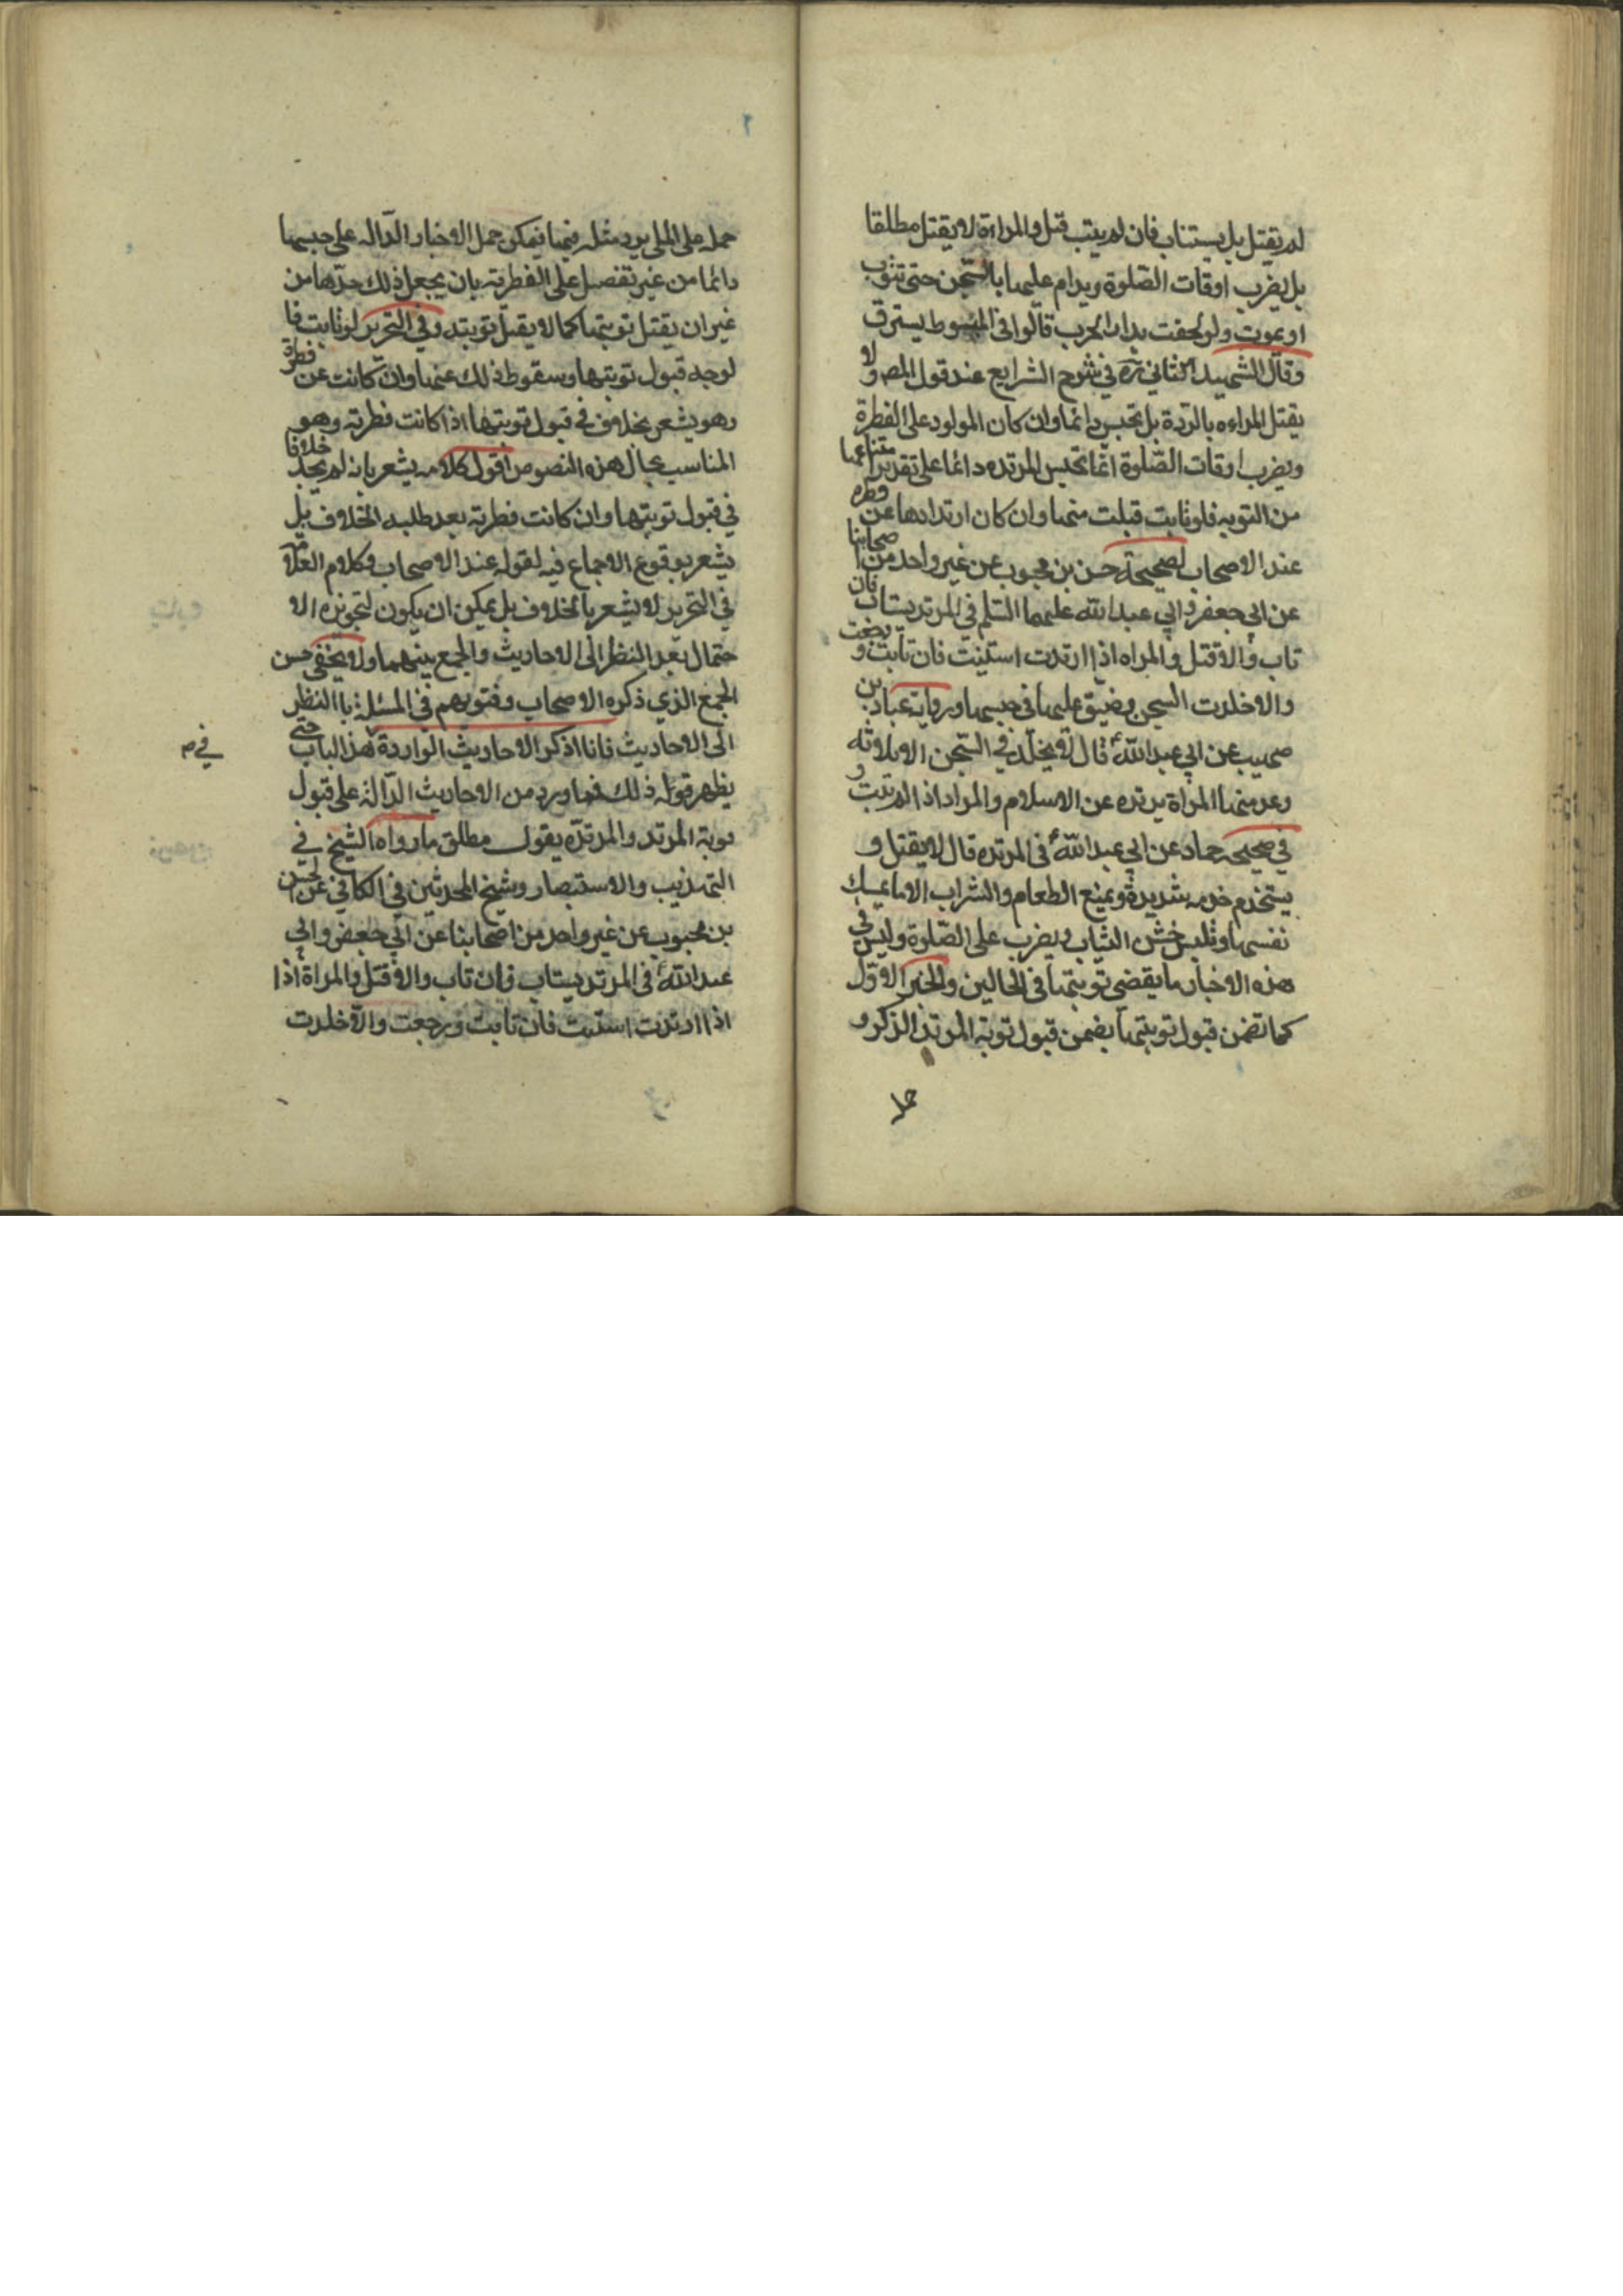 لم يقتل بل يستتاب فان لم يتب قتل والمراءة لا يقتل مطلقا
بل يضرب اوقات الصّلوة ويدام عليها بالسّجن حتى تتوب
او يموت ولو لحقت بدار الحرب قالوا في المبسوط يسترق
وقال الشهيد الثاني ره في شرح الشرايع عند قول المص ولا
يقتل المراءه بالردة بل تحبس دائما وان كان المولود على الفطرة
ويضرب اوقات الصّلوة انما تحبس المرتده دائما على تقدير امتناعها
من التوبه فلو تابت قبلت منها وان كان ارتدادها عن فطره
عند الاصحاب لصحيحة حسن بن محبوب عن غير واحد من اصحابنا
عن ابي جعفر وابي عبد الله عليهما السّلم في المرتد يستاب فان
تاب والا قتل والمراه اذا ارتدت استتيبت فان تابت و رجعت
والا خلدت السجن وضيق عليها في حبسها ورواية عباد بن
صهيب عن ابي عبد الله ع قال لا يخلّد في السّجن الا ثلاثه
وعد منها المراة يرتده عن الاسلام والمراد اذا لم تتب و
في صحيحه حماد عن ابي عبد الله ع في المرتده قال لا يقتل و
يستخدم خدمه شديدة ويمنع الطعام والشراب الا ما يمسك
نفسها وتلبس خشن الثياب ويضرب على الصّلوة وليس في
هذه الاخبار ما يقضى توبتها في الحالين والخبر الاوّل
كما تضمن قبول توبتها يضمن قبول توبة المرتد الذكر و
حمله
حمله على الملي يرد مثله فيها فيمكن حمل الاخبار الدّاله على حبسها
دائما من غير تفصيل على الفطرته بان يجعل ذلك حدّها من
غير ان يقتل توبتها كما لا يقبل توبته وفي التحرير لو تابت فا
لوجه قبول توبتها وسقوط ذلك عنها وان كانت عن فطرة
وهو يشعر بخلاف في قبول توبتها اذا كانت فطرته وهو
المناسب بحال هذه النصوص اقول كلامه يشعر بانه لم يجد خلافا
في قبول توبتها وان كانت فطرته بعد طلبه الخلاف بل
يشعر بوقوع الاجماع فيه لقوله عند الاصحاب وكلام العلامه
في التحرير لا يشعر بالخلاف بل يمكن ان يكون لتجويزه الا
حتمال بعد النظر الى الاحاديث والجمع بينهما ولا يخفى حسن
الجمع الذي ذكره الاصحاب وفتويهم في المسئلة باالنظر
الى الاحاديث فانا اذكر الاحاديث الواردة هذا الباب حتى
في م
يظهر قوله ذلك فما ورد من الاحاديث الدّالة على قبول
توبة المرتد والمرتدّه يقول مطلق ما رواه الشيخ في
التهذيب والاستبصار وشيخ المحدثين في الكافي عن الحسن
بن محبوب عن غير واحد من اصحابنا عن ابي جعفر وابي
عبد الله ع في المرتد يستاب فان تاب والا قتل والمراة اذا
اذا ارتدت استتيبت فان تابت ورجعت والّا خلدت